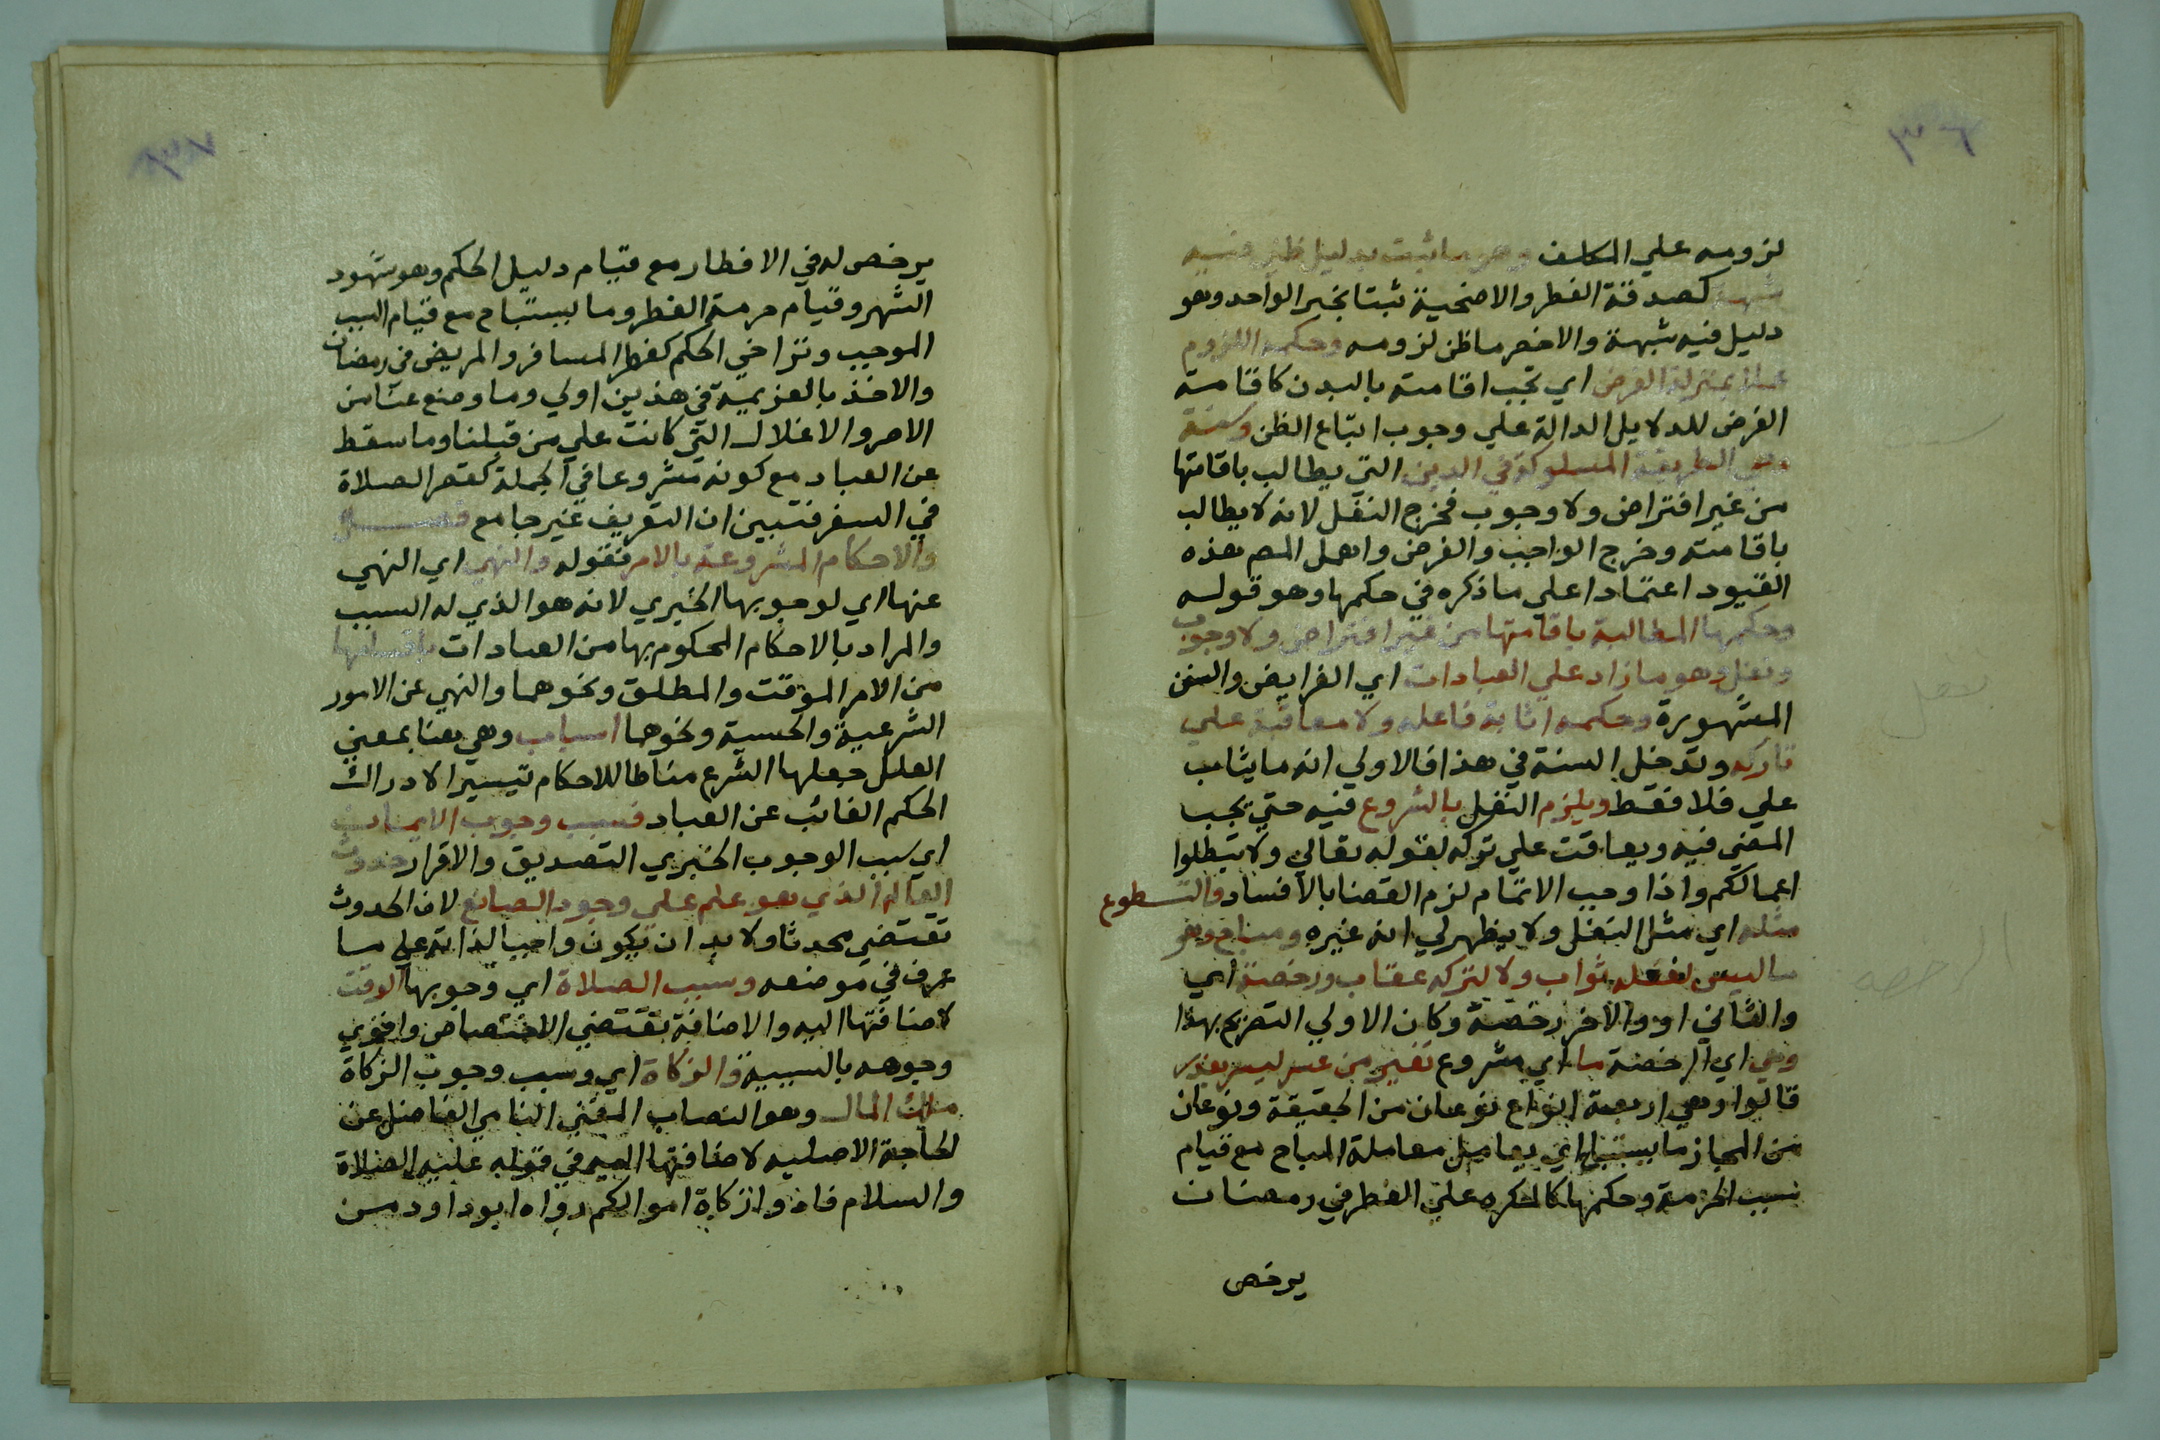 ٣٦
لزومه علي المكلف وهو ما ثبت بدليل ظني فيه
شبهة كصدقة الفطر والاضحية ثبتا بخبر الواحد وهو
دليل فيه شبهة والاخصر ما ظن لزومه وحكمه اللزوم
عملا بمنزلة الفرض اي تجب اقامته بالبدن كاقامة
الفرض للدلايل الدالة علي وجوب اتباع الظن وسنة
وهي الطريقة المسلوكة في الدين التي يطالب باقامتها
من غير افتراض ولا وجوب فخرج النفل لانه لا يطالب
باقامته وخرج الواجب والفرض واهمل المص هذه
القيود اعتمادا علي ما ذكره في حكمها وهو قوله
وحكمها المطالبة باقامتها من غير افتراض ولا وجوب
ونفل وهو ما زاد علي العبادات اي الفرايض والسنن
المشهورة وحكمه اثابة فاعله ولا معاقبة علي
تاركه وتدخل السنة في هذا فالاولي انه ما يثاب
علي فلا فقط ويلزم النفل بالشروع فيه حتي يجب
المضي فيه ويعاقب علي تركه لقوله تعالي ولا تبطلوا
اعمالكم واذا وجب الاتمام لزم القضا بالافساد والتطوع
مثله اي مثل النفل ولا يظهر لي انه غيره ومباح وهو
ما ليس لفعله ثواب ولا لتركه عقاب ورخصة اي
والثاني او والاخر رخصة وكان الاولي التصريح بهذا
وهي اي الرخصة ما اي مشروع تغير من عسر ليسر بعذر
قالوا وهي اربعة انواع نوعان من الحقيقة ونوعان
من المجاز ما يستباح اي يعامل معاملة المباح مع قيام
سبب الحرمة وحكمها كالمكره علي الفطر في رمضان
يرخص
نفل
الرخصة
٣٧
يرخص له في الافطار مع قيام دليل الحكم وهو شهود
الشهر وقيام حرمة الفطر وما يستباح مع قيام السبب
الموجب وتراخي الحكم كفطر المسافر والمريض في رمضان
والاخذ بالعزيمة في هذين اولي وما وضع عنا من
الاصر والاغلال التي كانت علي من قبلنا وما سقط
عن العباد مع كونه مشروعا في الجملة كقصر الصلاة
في السفر فتبين ان التعريف غير جامع فصل
والاحكام المشروعة بالامر كقوله والنهي اي النهي
عنها اي لوجوبها الخبري لانه هو الذي له السبب
والمراد بالاحكام المحكوم بها من العبادات باقسامها
من الامر الموقت والمطلق ونحوهما والنهي عن الامور
الشرعية والحسية ونحوهما اسباب وهي هنا بمعني
العلل جعلها الشرع مناطا للاحكام تيسيرا لادراك
الحكم الغائب عن العباد فسبب وجوب الايمان
اي سبب الوجوب الخبري التصديق والاقرار حدوث
العالم الذي هو علم علي وجود الصانع لان الحدوث
تقتضي محدثا ولا بد ان يكون واجبا لذاته علي ما
عرف في موضعه وسبب الصلاة اي وجوبها الوقت
لاضافتها اليه والاضافة تقتضي الاختصاص واقوي
وجوهه بالسببية والزكاة اي وسبب وجوب الزكاة
ملك المال وهو النصاب المغني النامي الفاضل عن
الحاجة الاصليه لاضافتها اليه في قوله عليه الصلاة
والسلام فاد وا زكاة اموالكم رواه ابو داود من